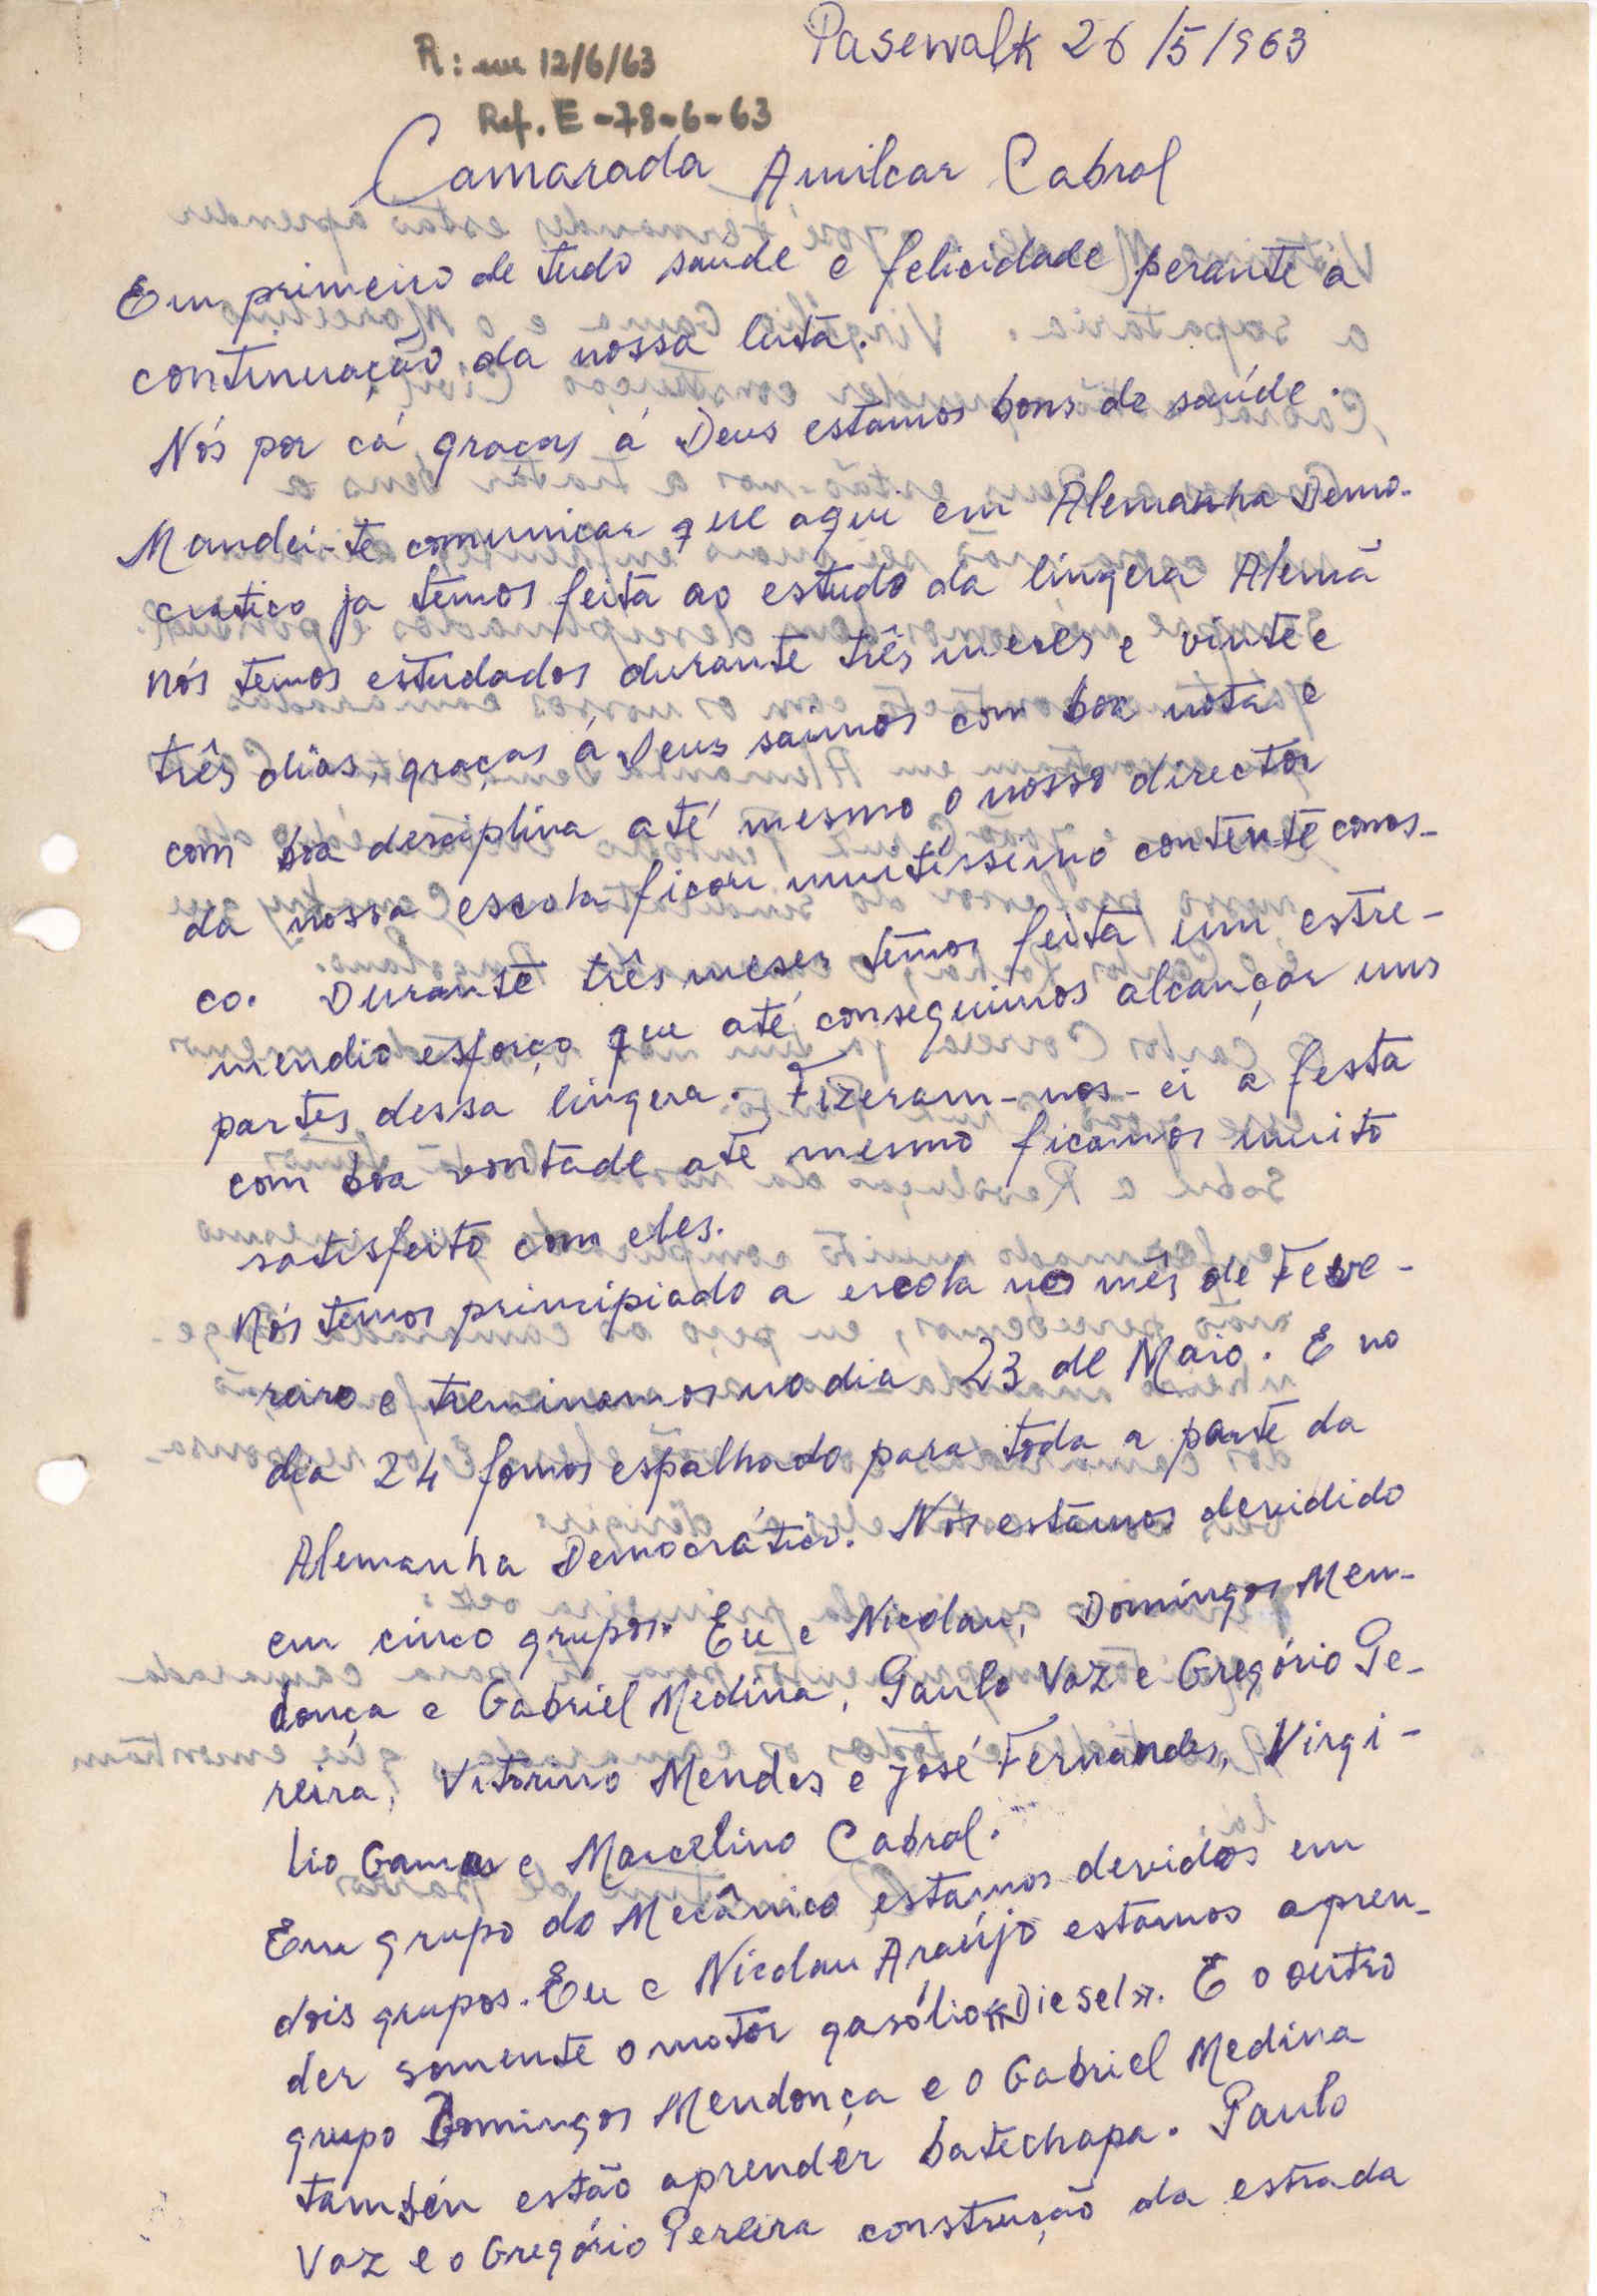 Pasewalk 26/5/1963
R: em 12/6/63
Ref. E-78-6-63
Camarada Amilcar Cabral
Em primeiro de tudo saude e felicidade perante a
continuação da nossa luta.
Nós por cá graças á Deus estamos bons de saúde.
Mandei-te comunicar que aqui em Alemanha Demo-
cratico ja temos feita ao estudo da lingera Alemã
nós temos estudados durante três meses e vinte e
três dias, graças á Deus saimos com boa nota e
com boa desciplina até mesmo o nosso director
da nossa escola ficou muitissimo contente conos-
co. Durante três meses temos feita um estre-
mendio esforço que até conseguimos alcançar uns
partes dessa lingera. Fizeram-nos-ei a festa
com boa vontade até mesmo ficamos muito
satisfeito com eles.
Nós temos principiado a escola nos mês de Feve-
reiro e treminamos no dia 23 de Maio. E no
dia 24 fomos espalhado para toda a parte da
Alemanha Democrática. Nós estamos devidido
em cinco grupos. Eu e Nicolau, Domingos Men-
donça e Gabriel Medina, Paulo Vaz e Gregório Pe-
reira, Vitorino Mendes e José Fernandes, Virgi-
lio Gamas e Marcelino Cabral.
Em grupo do Mecânico estamos devidos em
dois grupos. Eu e Nicolau Araújo estamos apren-
der somente o motor gasólio «Diesel». E o outro
grupo Domingos Mendonça e o Gabriel Medina
tambén estão aprender batechapa. Paulo
Vaz e o Gregório Pereira construção da estrada